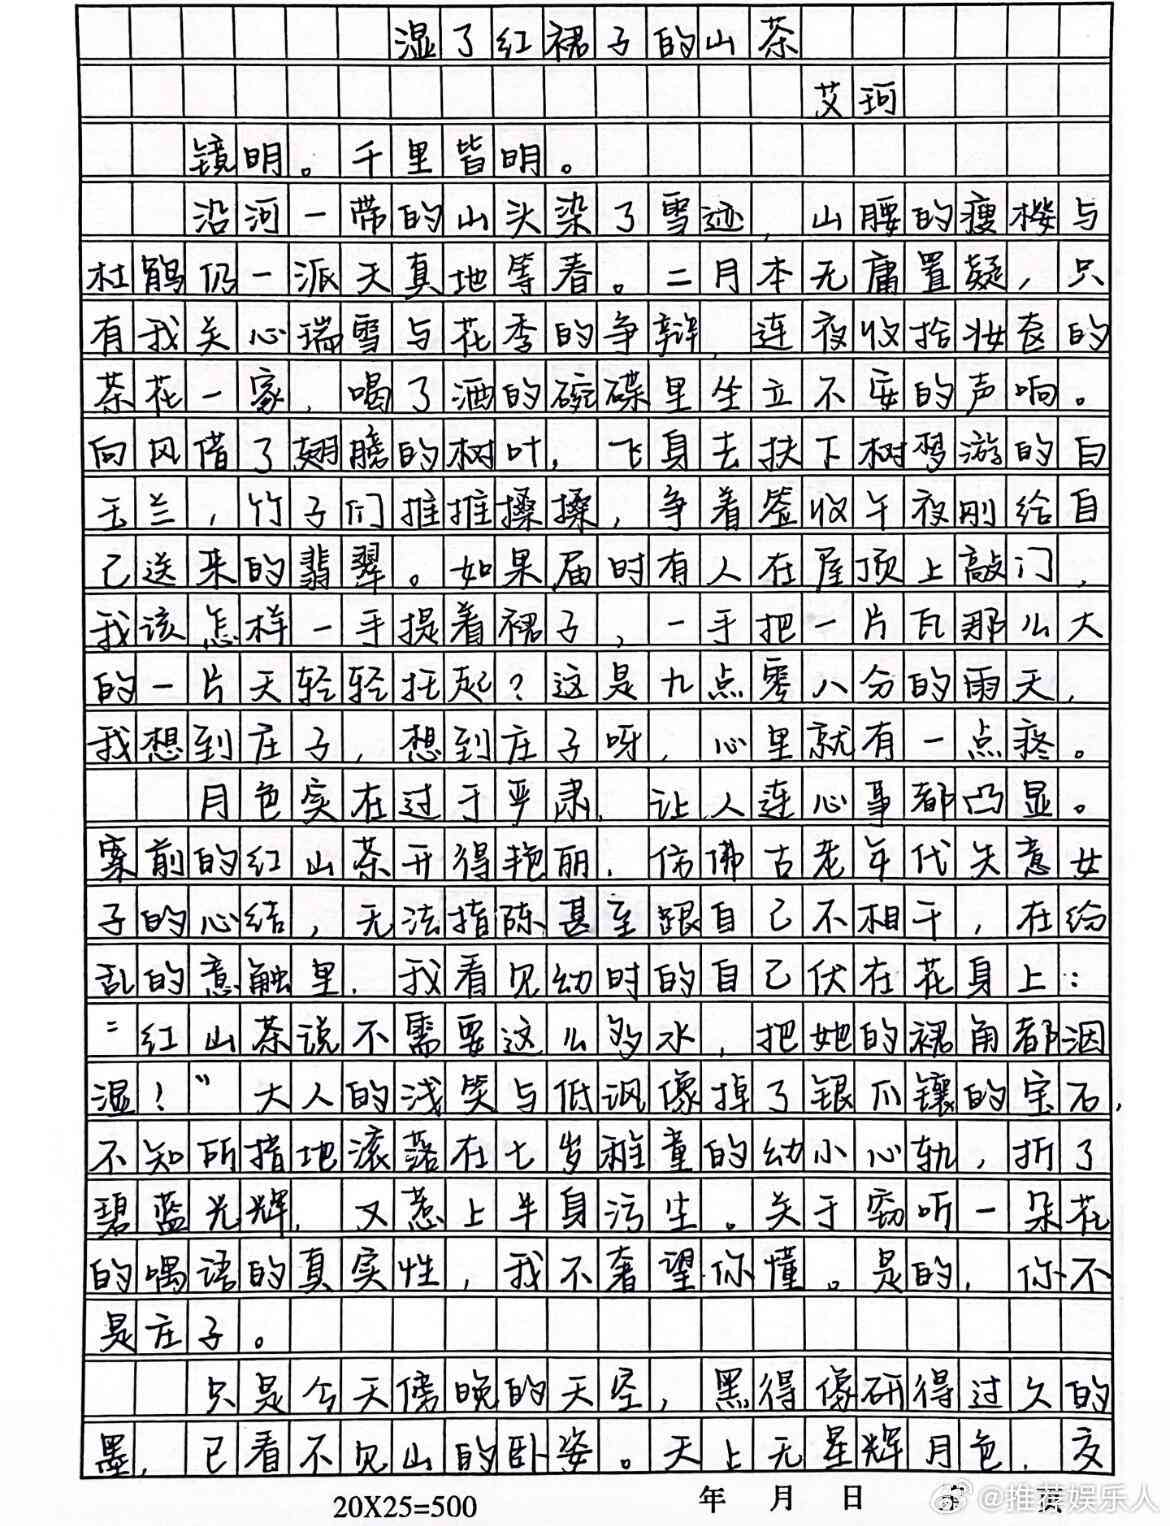 湿了红裙子的山茶
艾珂
镜明。千里皆明。
沿河一带的山头染了雪迹,山腰的瘦樱与
杜鹃仍一派天真地等春。二月本无庸置疑,只
有我关心瑞雪与花季的争辩,连夜收拾妆奁的
茶花一家,喝了酒的碗碟里坐立不安的声响。
向风借了翅膀的树叶,飞身去扶下树梦游的白
玉兰,竹子们推推搡搡,争着签收午夜刚给自
己送来的翡翠。如果届时有人在屋顶上敲门,
我该怎样一手提着裙子,一手把一片瓦那么大
的一片天轻轻托起?这是九点零八分的雨天,
我想到庄子,想到庄子呀,心里就有一点疼。
月色实在过于严肃,让人连心事都凸显。
案前的红山茶开得艳丽,仿佛古老年代失意女
子的心结,无法指陈甚至跟自己不相干,在纷
乱的意触里,我看见幼时的自己伏在花身上:
“红山茶说不需要这么多水,把她的裙角都洇
湿!”大人的浅笑与低讽像掉了银爪镶的宝石,
不知所措地滚落在七岁稚童的幼小心轨,折了
碧蓝光辉,又惹上半身污尘。关于窃听一朵花
的喁语的真实性,我不奢望你懂。是的,你不
是庄子。
只是今天傍晚的天空,黑得像研得过久的
墨,已看不见山的卧姿。天上无星辉月色,交
20X25=500 年 月 日 第 页
@推荐娱乐人